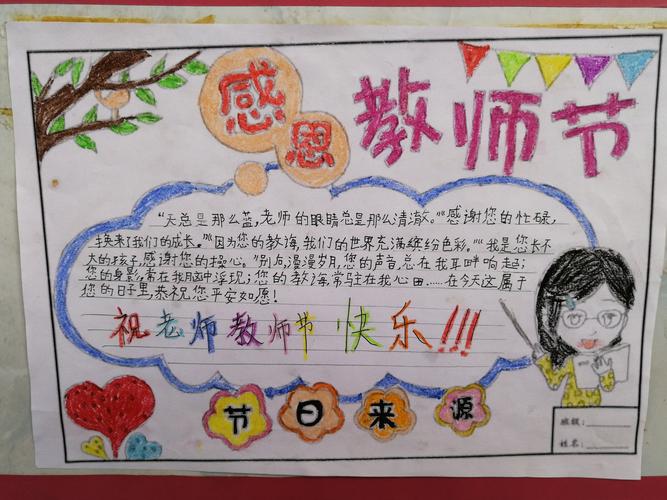 感恩
教师节
“天总是那么蓝,老师的眼睛总是那么清澈。”“感谢您的忙碌,
换来了我们的成长。”“因为您的教诲,我们的世界充满缤纷色彩。”“我是您长不
大的孩子,感谢您的操心。”别后,漫漫岁月,您的声音,总在我耳畔响起;
您的身影,常在我脑中浮现;您的教诲,常驻在我心田……在今天这属于
您的日子里,恭祝您平安如愿!
祝老师教师节快乐!!!
节日来源
班级:
姓名: